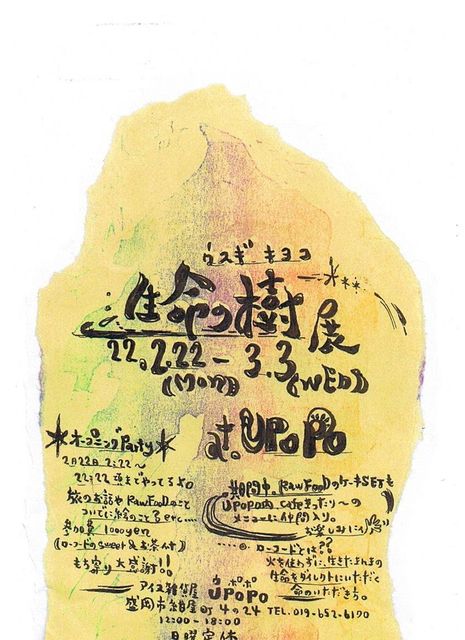 ウスギ キヨコ
生命の樹展
22.2.22 – 3.3
(Mon) (WED)
at. UPoPo
オープニングParty
2月22日 2:22〜
22:22 頃までやってるよ
旅のお話や RawFoodのこと
ついでに絵のこと etc....
参加費 1000yen
(ローフードのsweet &お茶付)
もち寄り大感謝!!
期間中、RawFoodのケーキSETも
UPOPO内 cafeまったり〜の
メニューに仲間入り。
お楽しみに♪
....ローフードとは??
火を使わずに、生きたままの
生命をダイレクトにいただく
命のいただきもの。
アイヌ雑貨屋 ウポポ UPoPo
盛岡市紺屋町4の24 TEL.019-652-6190
12:00 - 18:00
日曜定休